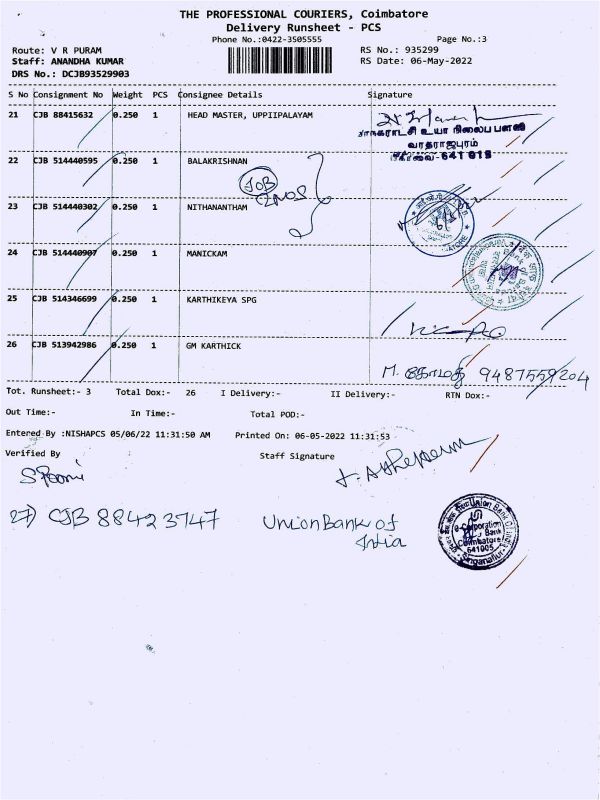 THE PROFESSIONAL COURIERS, Coimbatore
Delivery Runsheet - PCS
Phone No.:0422-3505555
Page No.:3
Route: V R PURAM
RS No.: 935299
Staff: ANANDHA KUMAR
RS Date: 06-May-2022
DRS No.: DCJB93529903
S No Consignment No Weight PCS Consignee Details Signature
21 CJB 88415632 0.250 1 HEAD MASTER, UPPIIPALAYAM
மாநகராட்சி உயர் நிலைப் பள்ளி
வரதராஜபுரம்
கோவை-641 015
22 CJB 514440595 0.250 1 BALAKRISHNAN
JOB
2NOS
23 CJB 514440302 0.250 1 NITHANANTHAM
24 CJB 514440907 0.250 1 MANICKAM
25 CJB 514346699 0.250 1 KARTHIKEYA SPG
26 CJB 513942986 0.250 1 GM KARTHICK
M. கோமதி 9487559204
Tot. Runsheet:- 3 Total Dox:- 26 I Delivery:- II Delivery:- RTN Dox:-
Out Time:- In Time:- Total POD:-
Entered By :NISHAPCS 05/06/22 11:31:50 AM Printed On: 06-05-2022 11:31:53
Verified By Staff Signature
27) CJB 88423747 Union Bank of
India
Union Bank Of India
e-Corporation
Bank
Coimbatore
641005
Singanallur